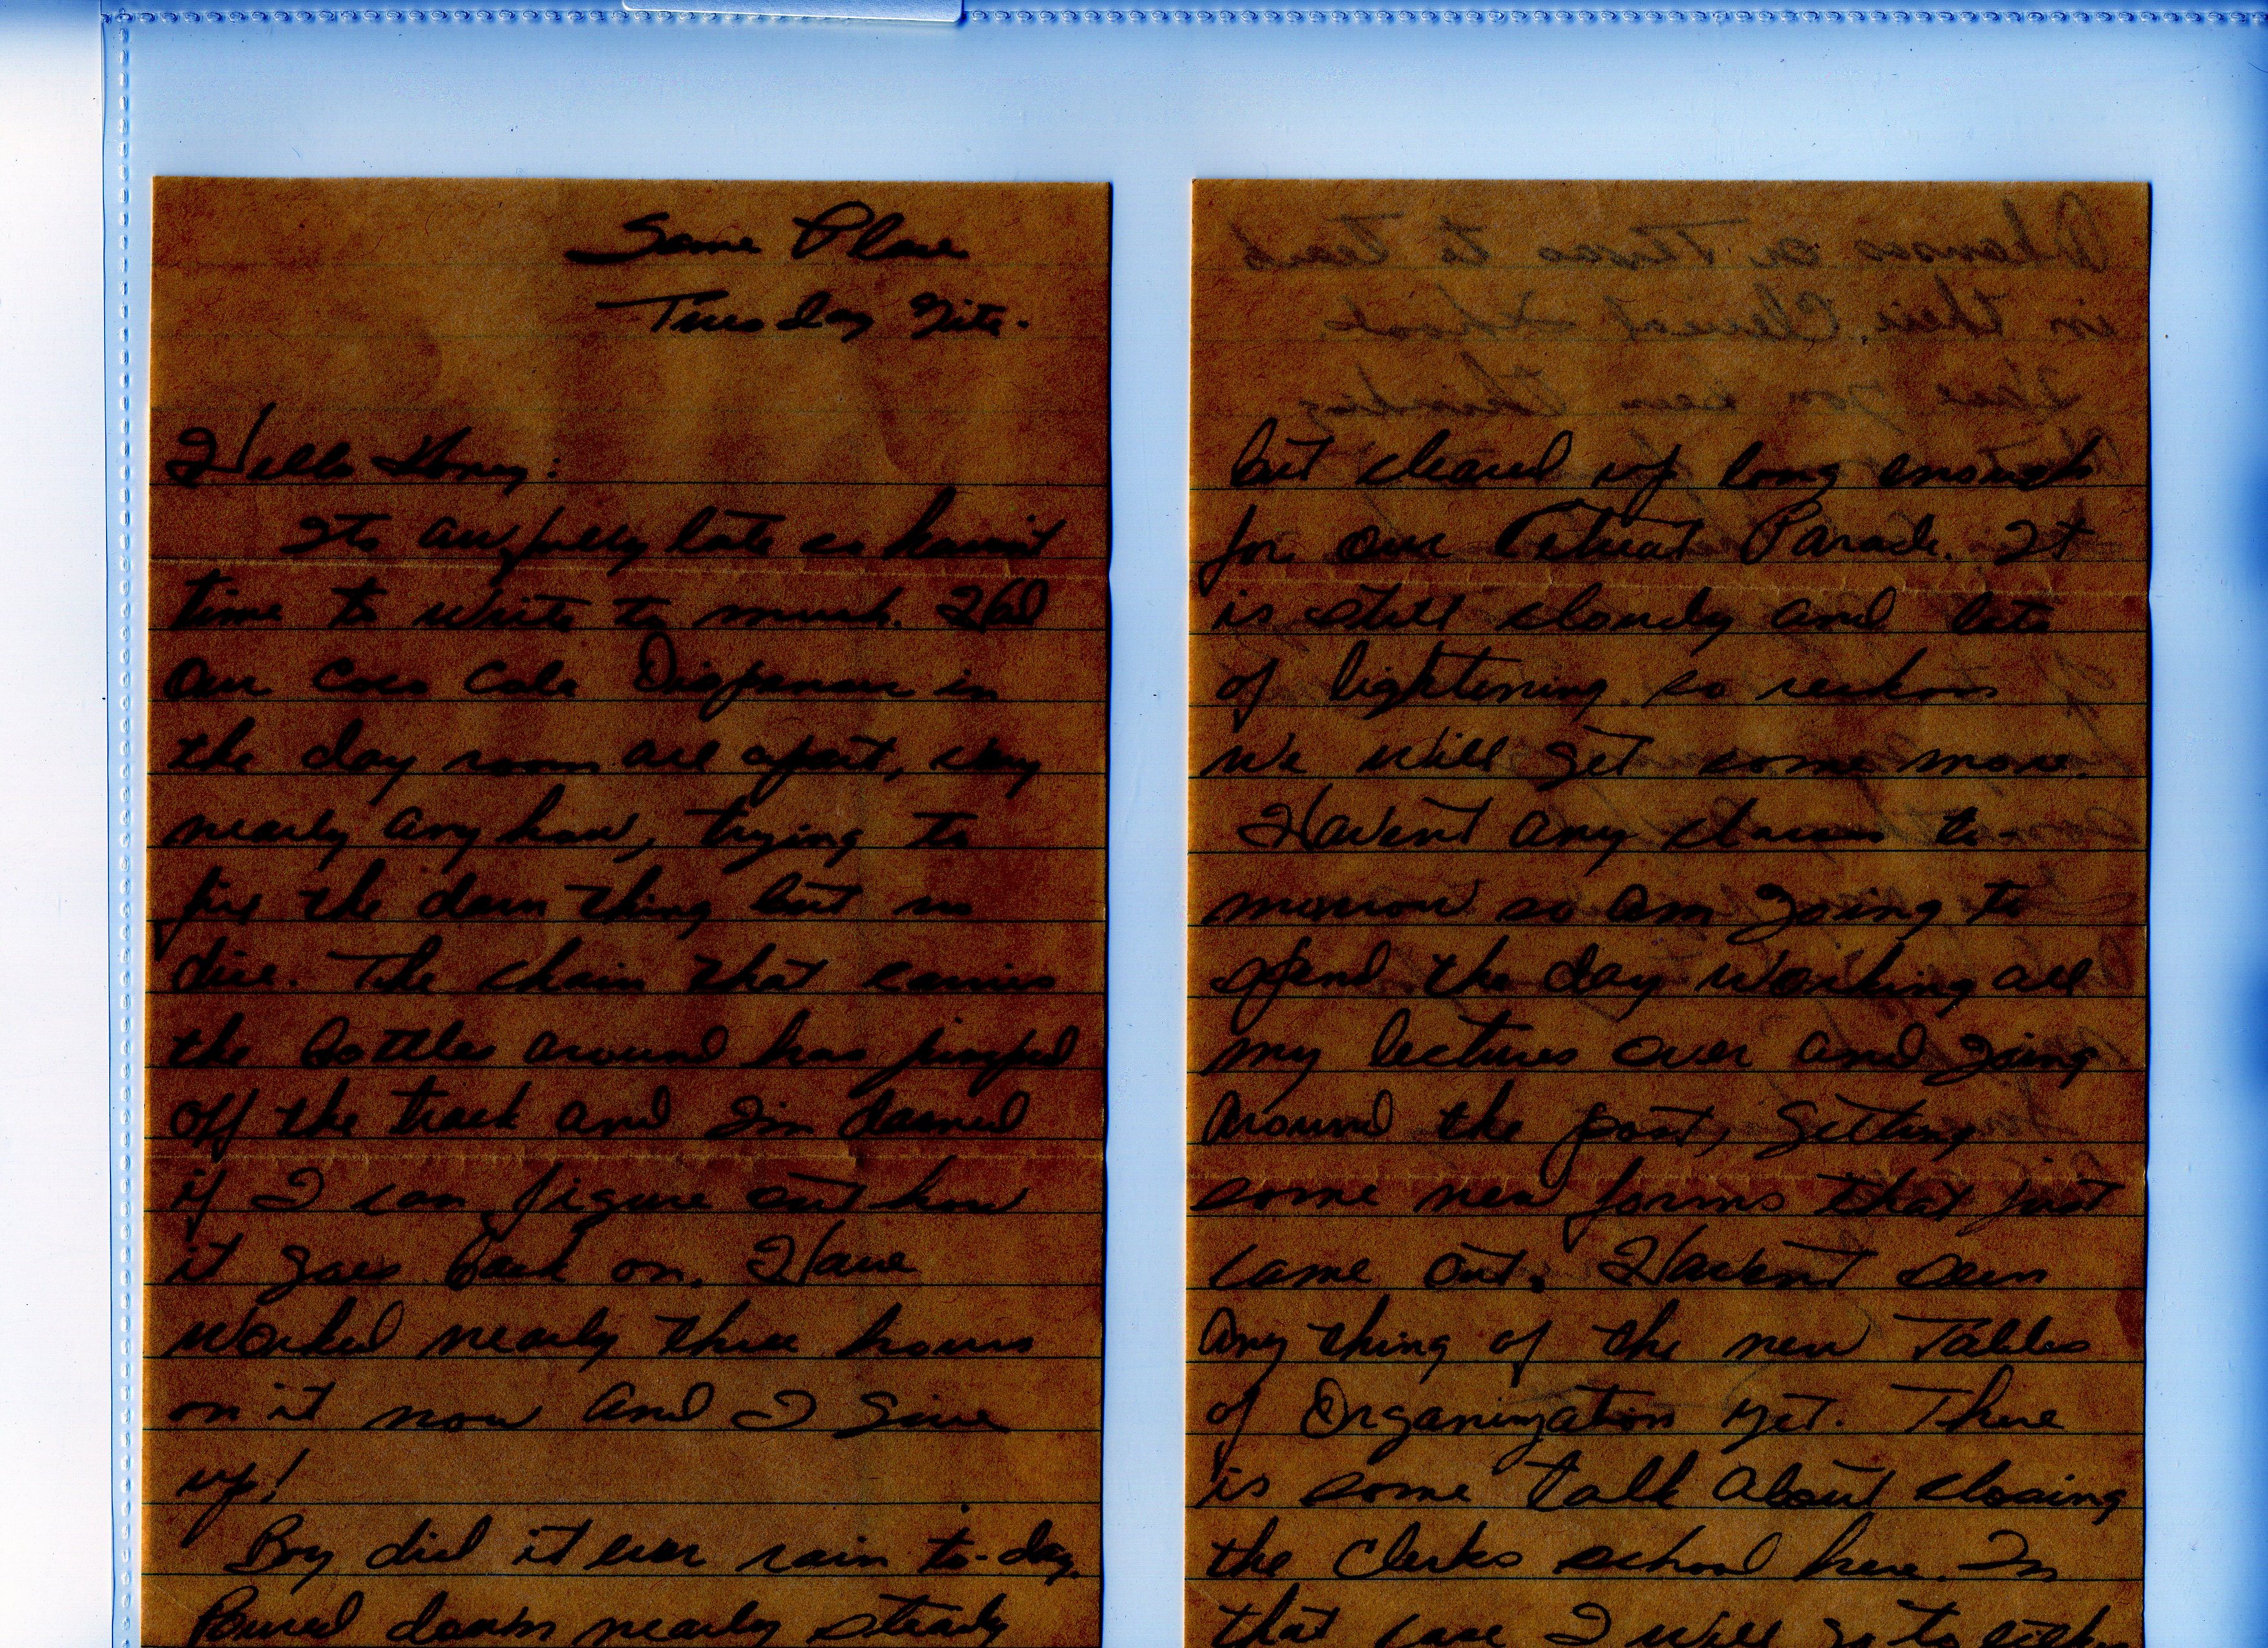 Same Place
Tuesday Nite.
Hello Honey:
Its awfully late so havent
time to write to much. Had
our Coco Cola Dispenser in
the day room all apart, very
nearly any how, trying to
fix the darn thing but no
dice. The chain that carries
the bottles around has jumped
off the track and I'm darned
if I can figure out how
it goes back on. Have
worked nearly three hours
on it now and I give
up!
Boy did it ever rain to-day.
Poured down nearly steady
but cleared up long enough
for our Retreat Parade. It
is still cloudy and lots
of lightening so reckon
we will get some more.
Havent any classes to-
morrow so am going to
spend the day working all
my lectures over and going
around the post, getting
some new forms that just
came out. Havent seen
any thing of the new Tables
of Organization yet. There
is some talk about closing
the Clerks school here. In
that case I will go to either
Arkansas or Texas to teach
in their Clerical schools.
Have you been thinking